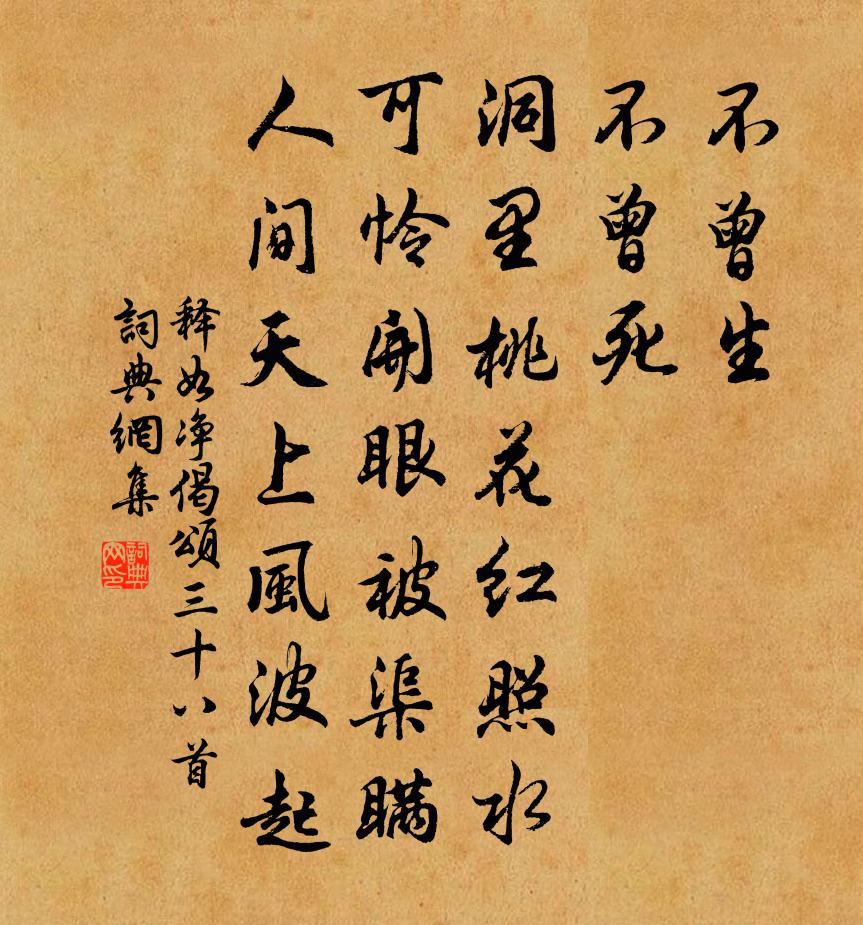 不曾生
不曾死
洞里桃花红照水
可怜開眼被渠瞞
人间天上風波起
释如净偈頌三十八首
詞典網集
詞典
网印